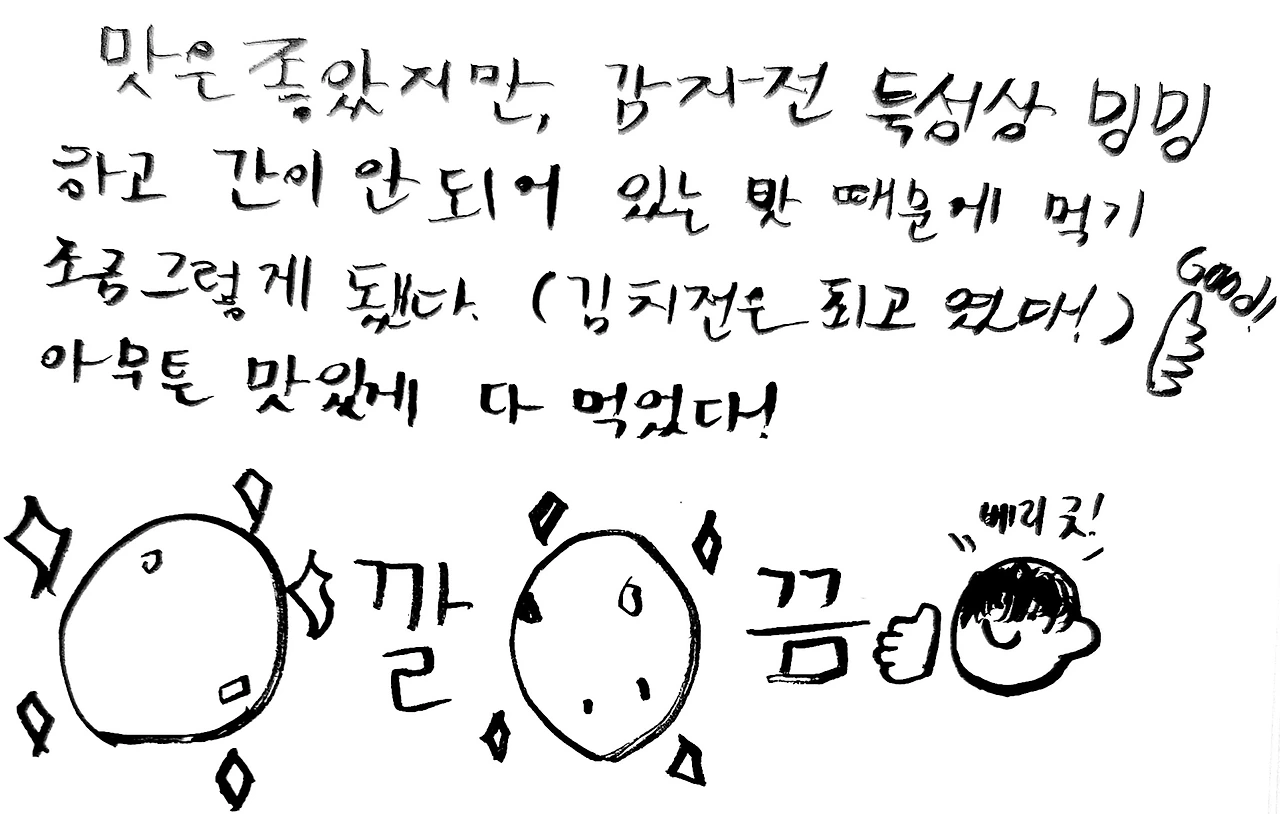 맛은 좋았지만, 감자전 특성상 밍밍
하고 간이 안 되어 있는 맛 때문에 먹기
조금 그렇게 됐다. (김치전은 최고 였다!)
Good!
아무튼 맛있게 다 먹었다!
베리 굿!
깔 끔